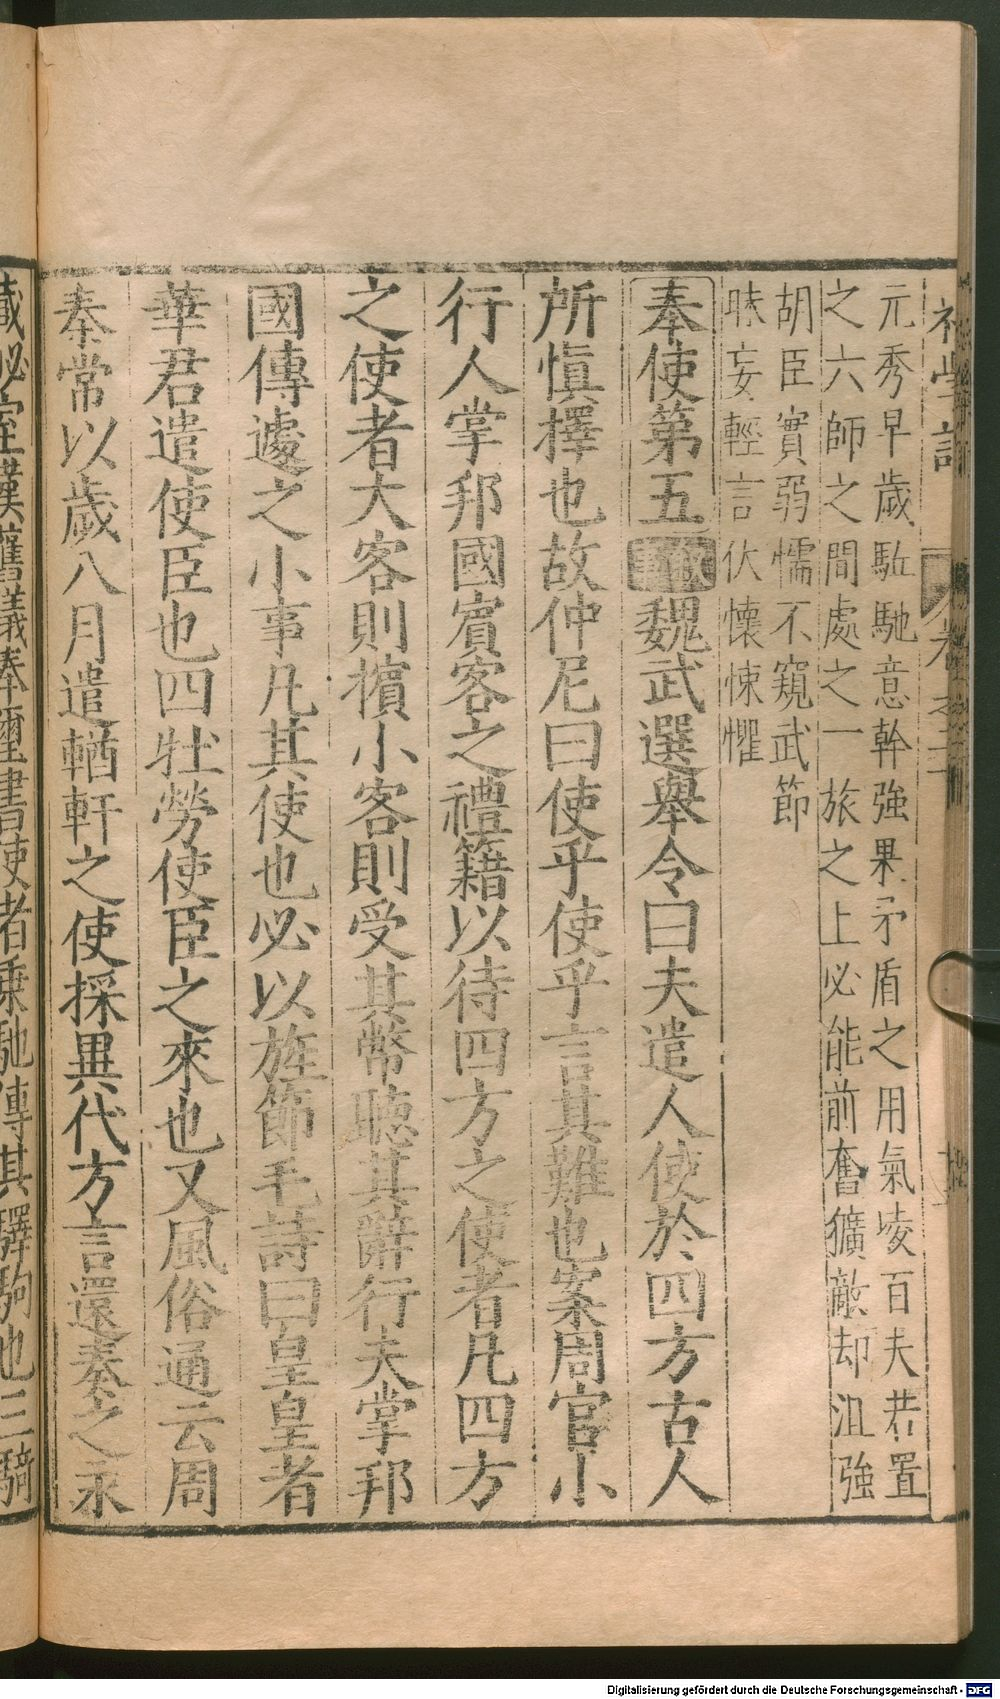 元秀早歲馳馳意幹強果矛盾之用氣崚百夫若置
之六師之間處之一旅之上必能前奮獷敵却沮強
胡臣實弱懦不窺武節
昧妄輕言伏懷悚懼
奉使第五 敘事 魏武選舉令曰夫遣人使於四方古人
所慎擇也故仲尼曰使乎使乎言其難也案周官小
行人掌邦國賓客之禮籍以待四方之使者凡四方
之使者大客則擯小客則受其幣聽其辭行夫掌邦
國傳遽之小事凡其使也必以旌節毛詩曰皇皇者
華君遣使臣也四牡勞使臣之來也又風俗通云周
秦常以歲八月遣輶軒之使採異代方言還奏之永
藏祕室漢舊儀奉璽書使者乘馳傳其驛駒也三騎
初學記
卷之二十
Digitalisierung gefördert durch die Deutsche Forschungsgemeinschaft - DFG